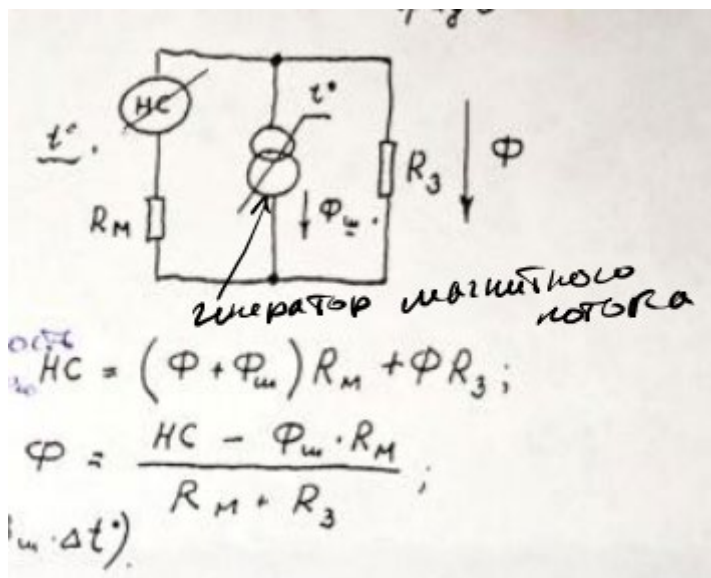 НС
t°
t°.
R_М
Φ_ш.
R_З
Φ
генератор магнитного
потока
НС = (Φ + Φ_ш) R_М + Φ R_З ;
Φ = (НС - Φ_ш · R_М) / (R_М + R_З) ;
ш · Δt°).